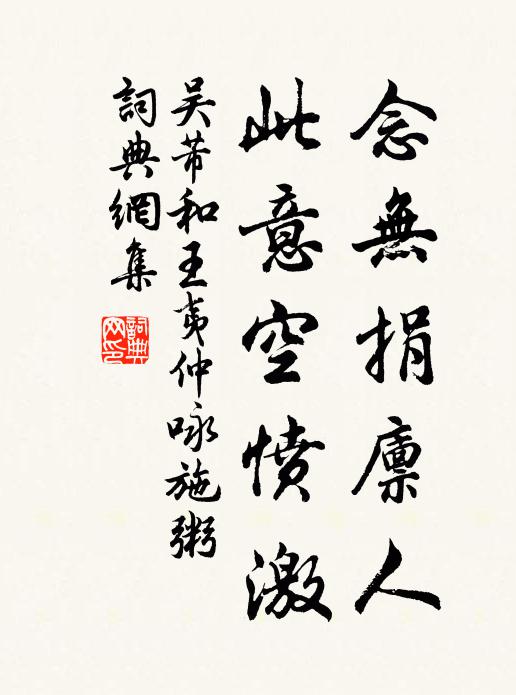 念無捐廩人
此意空憤激
吴芾和王夷仲咏施粥
詞典網集
詞典
网印